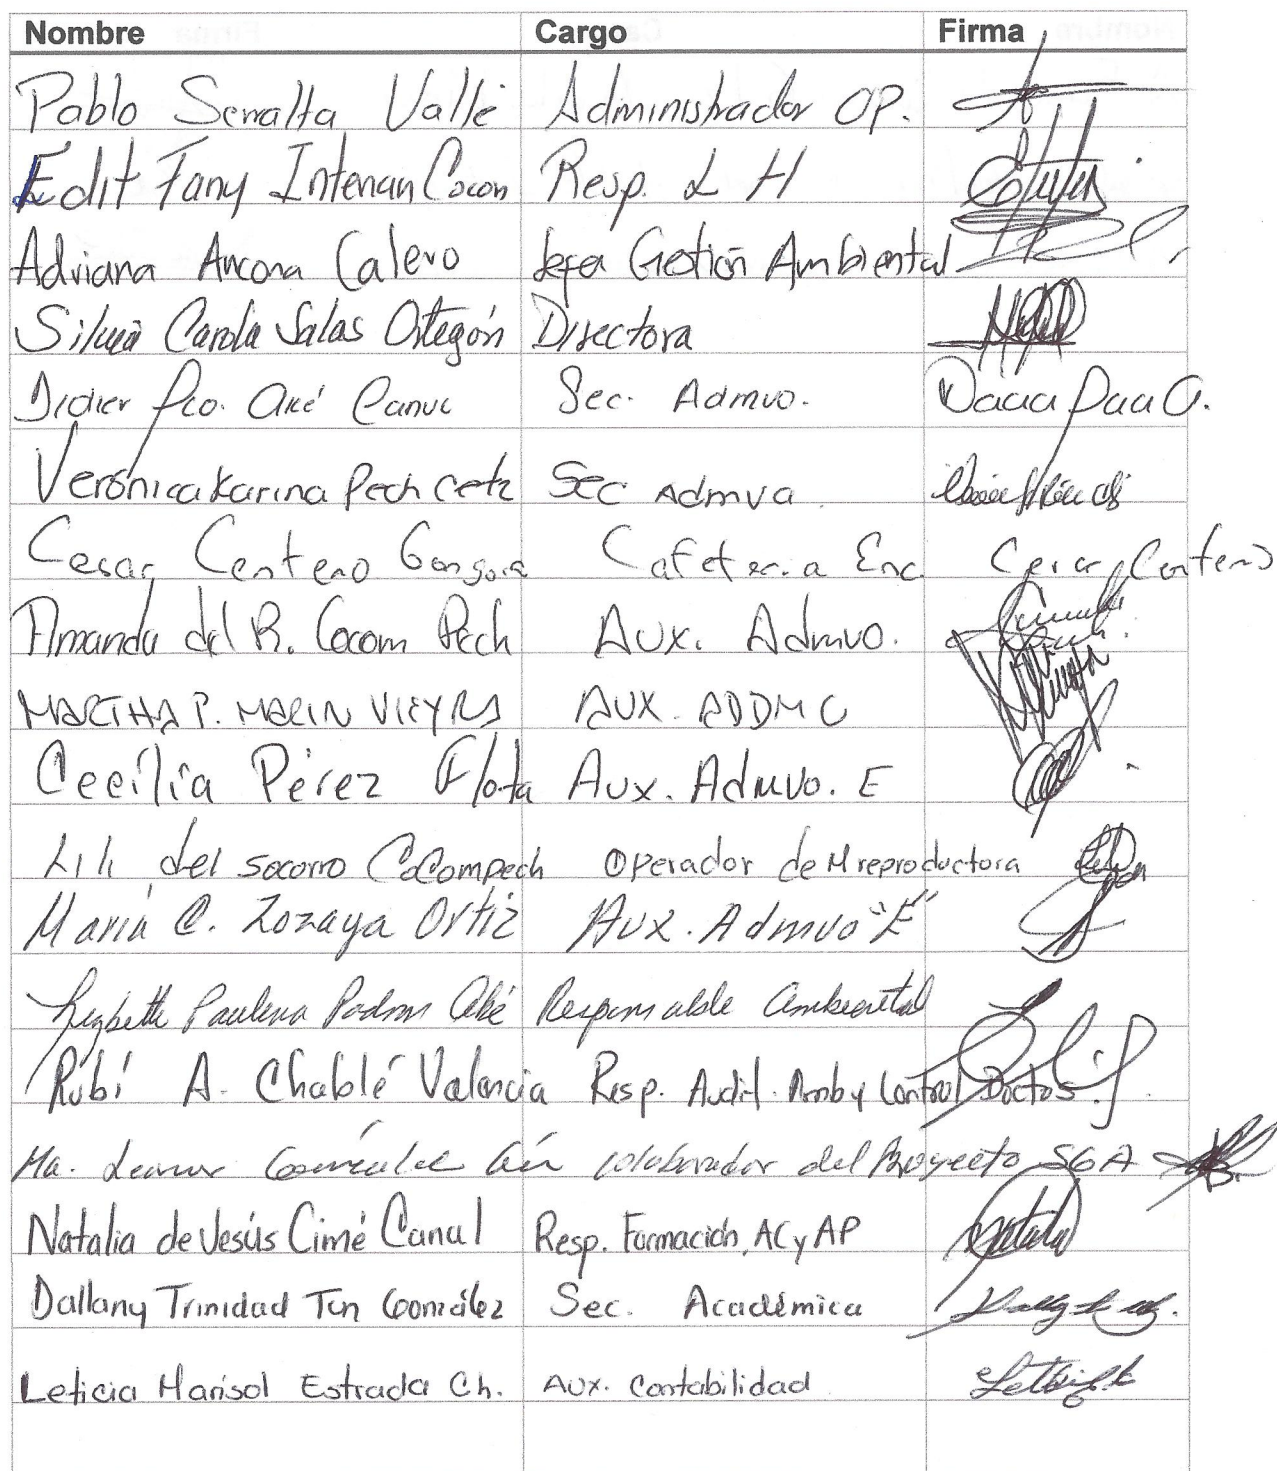 Nombre Cargo Firma
Pablo Serralta Valle Administrador OP.
Edit Fany Intenan Cocon Resp. L H
Adriana Ancona Calero Jefa Gestión Ambiental
Silvia Carola Salas Ortegón Directora
Didier Fco. Aké Canul Sec. Admvo.
Verónica Karina Pech Cetz Sec Admva
Cesar Centeno Gongora Cafeteria Enc. Cesar Centeno
Amanda del R. Cocom Pech Aux. Admvo.
MARTHA P. MARIN VIEYRA AUX.
Cecilia Pérez Flota Aux. Admvo. E
Lili del socorro Cocompech Operador de M reproductora
María C. Zozaya Ortiz Aux. Admvo "E"
Lizbeth Paulina Padron Aké Responsable Ambiental
Rubí A. Chablé Valencia Resp. Audit. Amb y Control Doctos.
Ma. Leonor González colaborador del Proyecto SGA
Natalia de Jesús Cimé Canul Resp. Formación, AC y AP
Dallany Trinidad Tun González Sec. Académica
Leticia Marisol Estrada Ch. Aux. Contabilidad